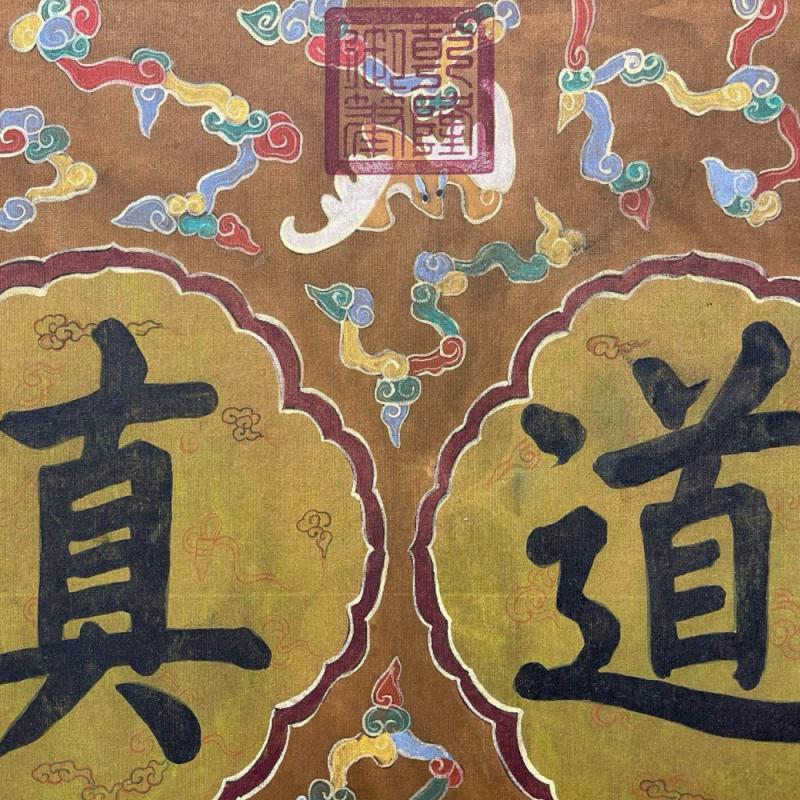 乾隆
御筆
道真